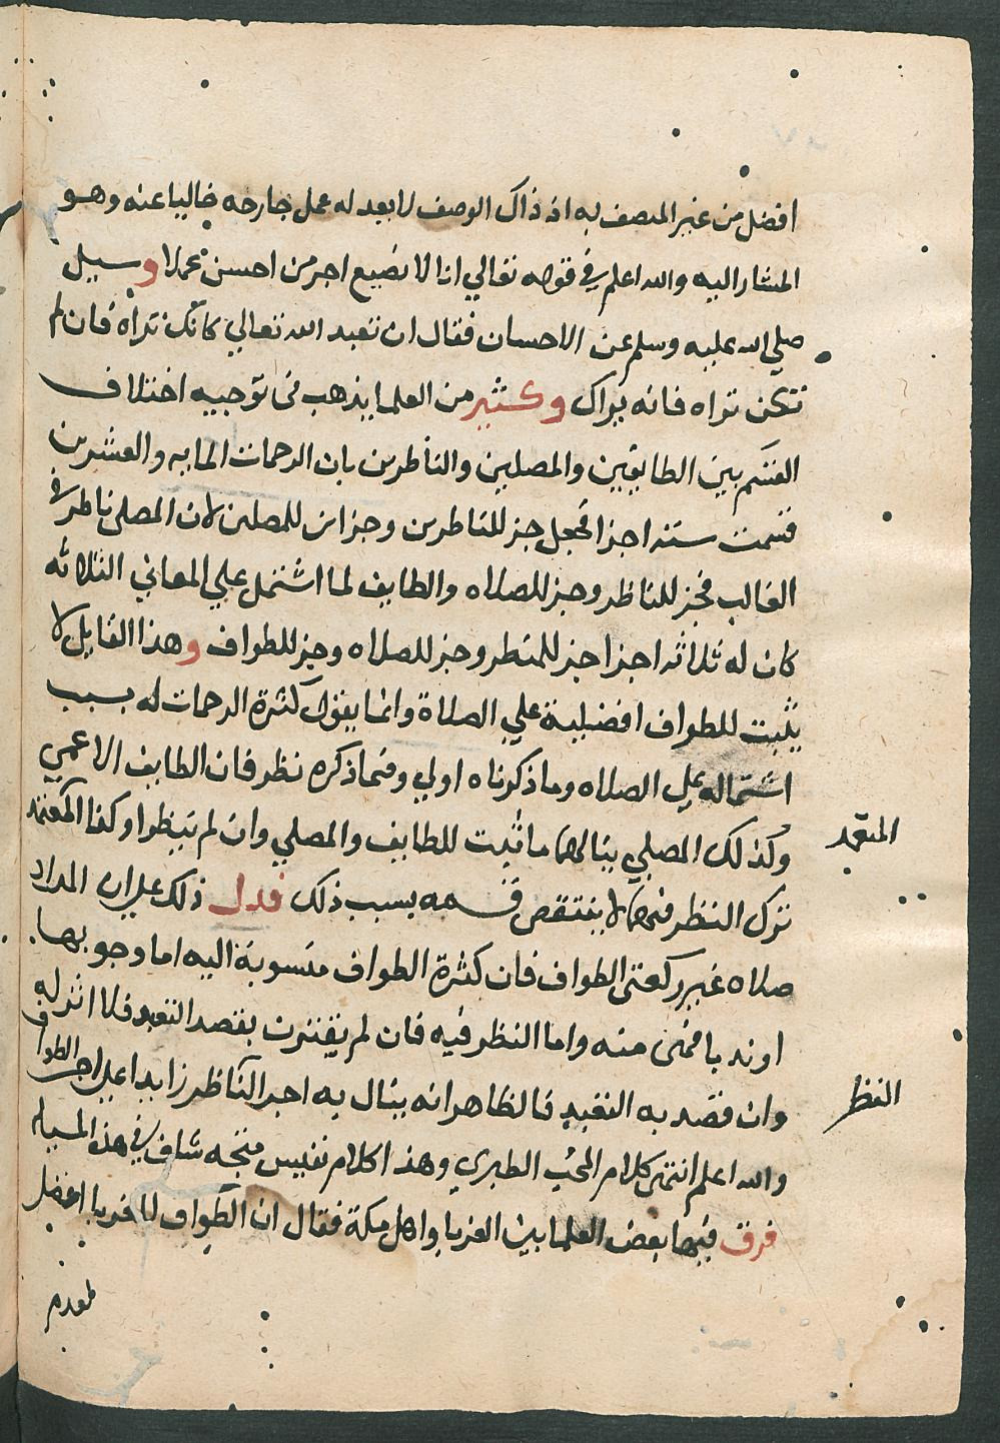 افضل من غير المتصف به اذ ذاك الوصف لا بعد له عمل جارحه خاليا عنه وهو
المشار اليه والله اعلم في قوله تعالي انا لا نضيع اجر من احسن عملا وسيل
صلي الله عليه وسلم عن الاحسان فقال ان تعبد الله تعالي كانك تراه فان لم
تكن تراه فانه يراك وكثير من العلما يذهب في توجيه اختلاف
القسم بين الطايفين والمصلين والناظرين بان الرحمات المايه والعشرين
قسمت سته اجزا فجعل جز للناظرين وجزان للمصلين لان المصلي ناظر في
الغالب فجز للناظر وجز للصلاه والطايف لما اشتمل علي المعاني الثلاثه
كان له ثلاثه اجزا جز للنظر وجز للصلاه وجز للطواف وهذا القايل لا
يثبت للطواف افضلية علي الصلاة وانما يقول كثرة الرحمات له بسبب
اشتماله علي الصلاه وما ذكرناه اولي وفيما ذكره نظر فان الطايف الاعمي
وكذلك المصلي ينالهما ما ثبت للطايف والمصلي وان لم ينظرا وكذا المتعمد
المتعمد
ترك النظر فيهما لا ينتقص قسمه بسبب ذلك فدل ذلك علي ان المراد
صلاه غير ركعتي الطواف فان كثرة الطواف منسوبة اليه اما وجوبها
او ندبا فهي منه واما النظر فيه فان لم يقترن بقصد التعبد فلا اثر له
وان قصد به التعبد فالظاهر انه ينال به اجر الناظر زايدا علي اجر الطواف
النظر
والله اعلم انتهي كلام المحب الطبري وهذا كلام نفيس متجه شاف في هذه المسيله
فرق فيها بعض العلما بين الغربا واهل مكة فقال ان الطواف للغربا افضل